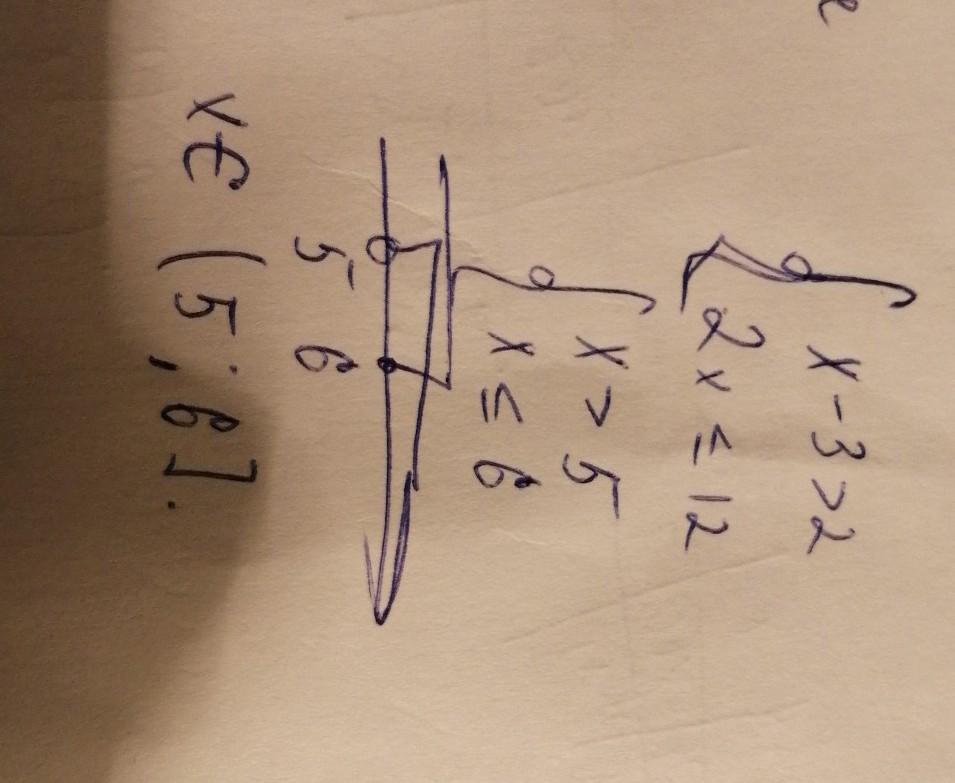 x - 3 > 2
2x ≤ 12
x > 5
x ≤ 6
5 6
x ∈ (5; 6].